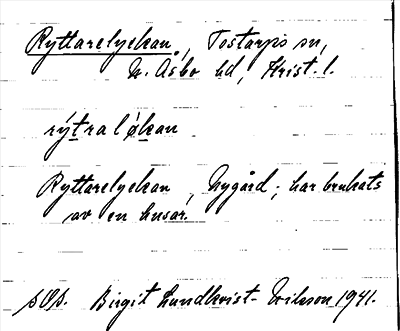 Ryttarelyekan, Tostarps sn,
N. Åsbo hd, Krist. l.
rýtralǿkan
Ryttarelyekan, Nygård; har brukats
av en husar.
sOs. Birgit Lundkvist-Eriksson 1941.